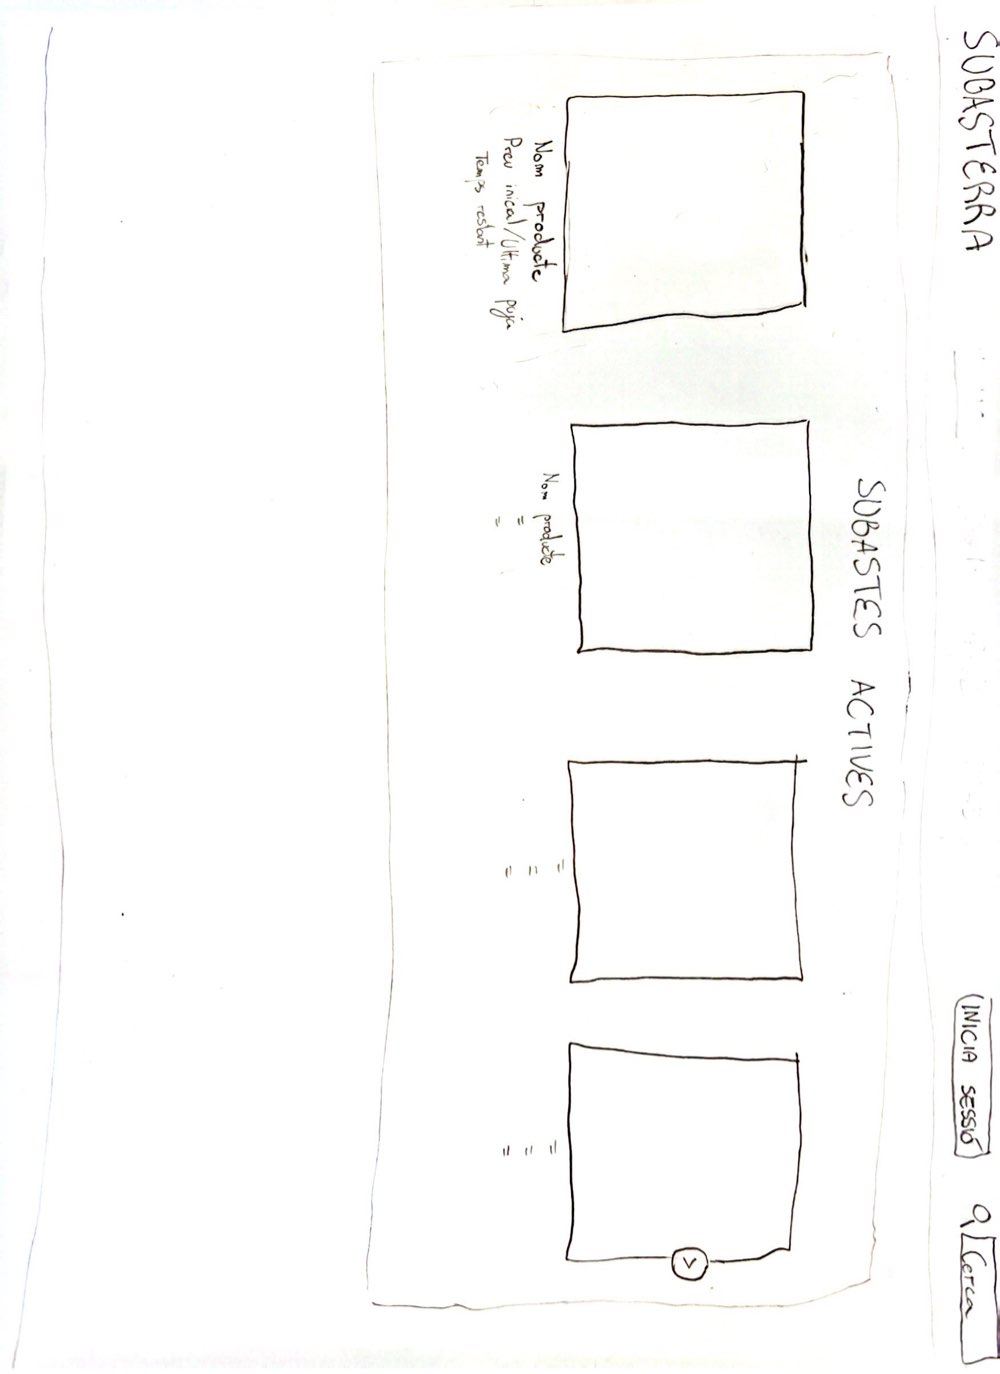 SUBASTERRA
INICIA SESSIÓ
Cerca
SUBASTES ACTIVES
>
Nom producte
Preu inical/Ultima puja
Temps restant
Nom producte
=
=
=
=
=
=
=
=